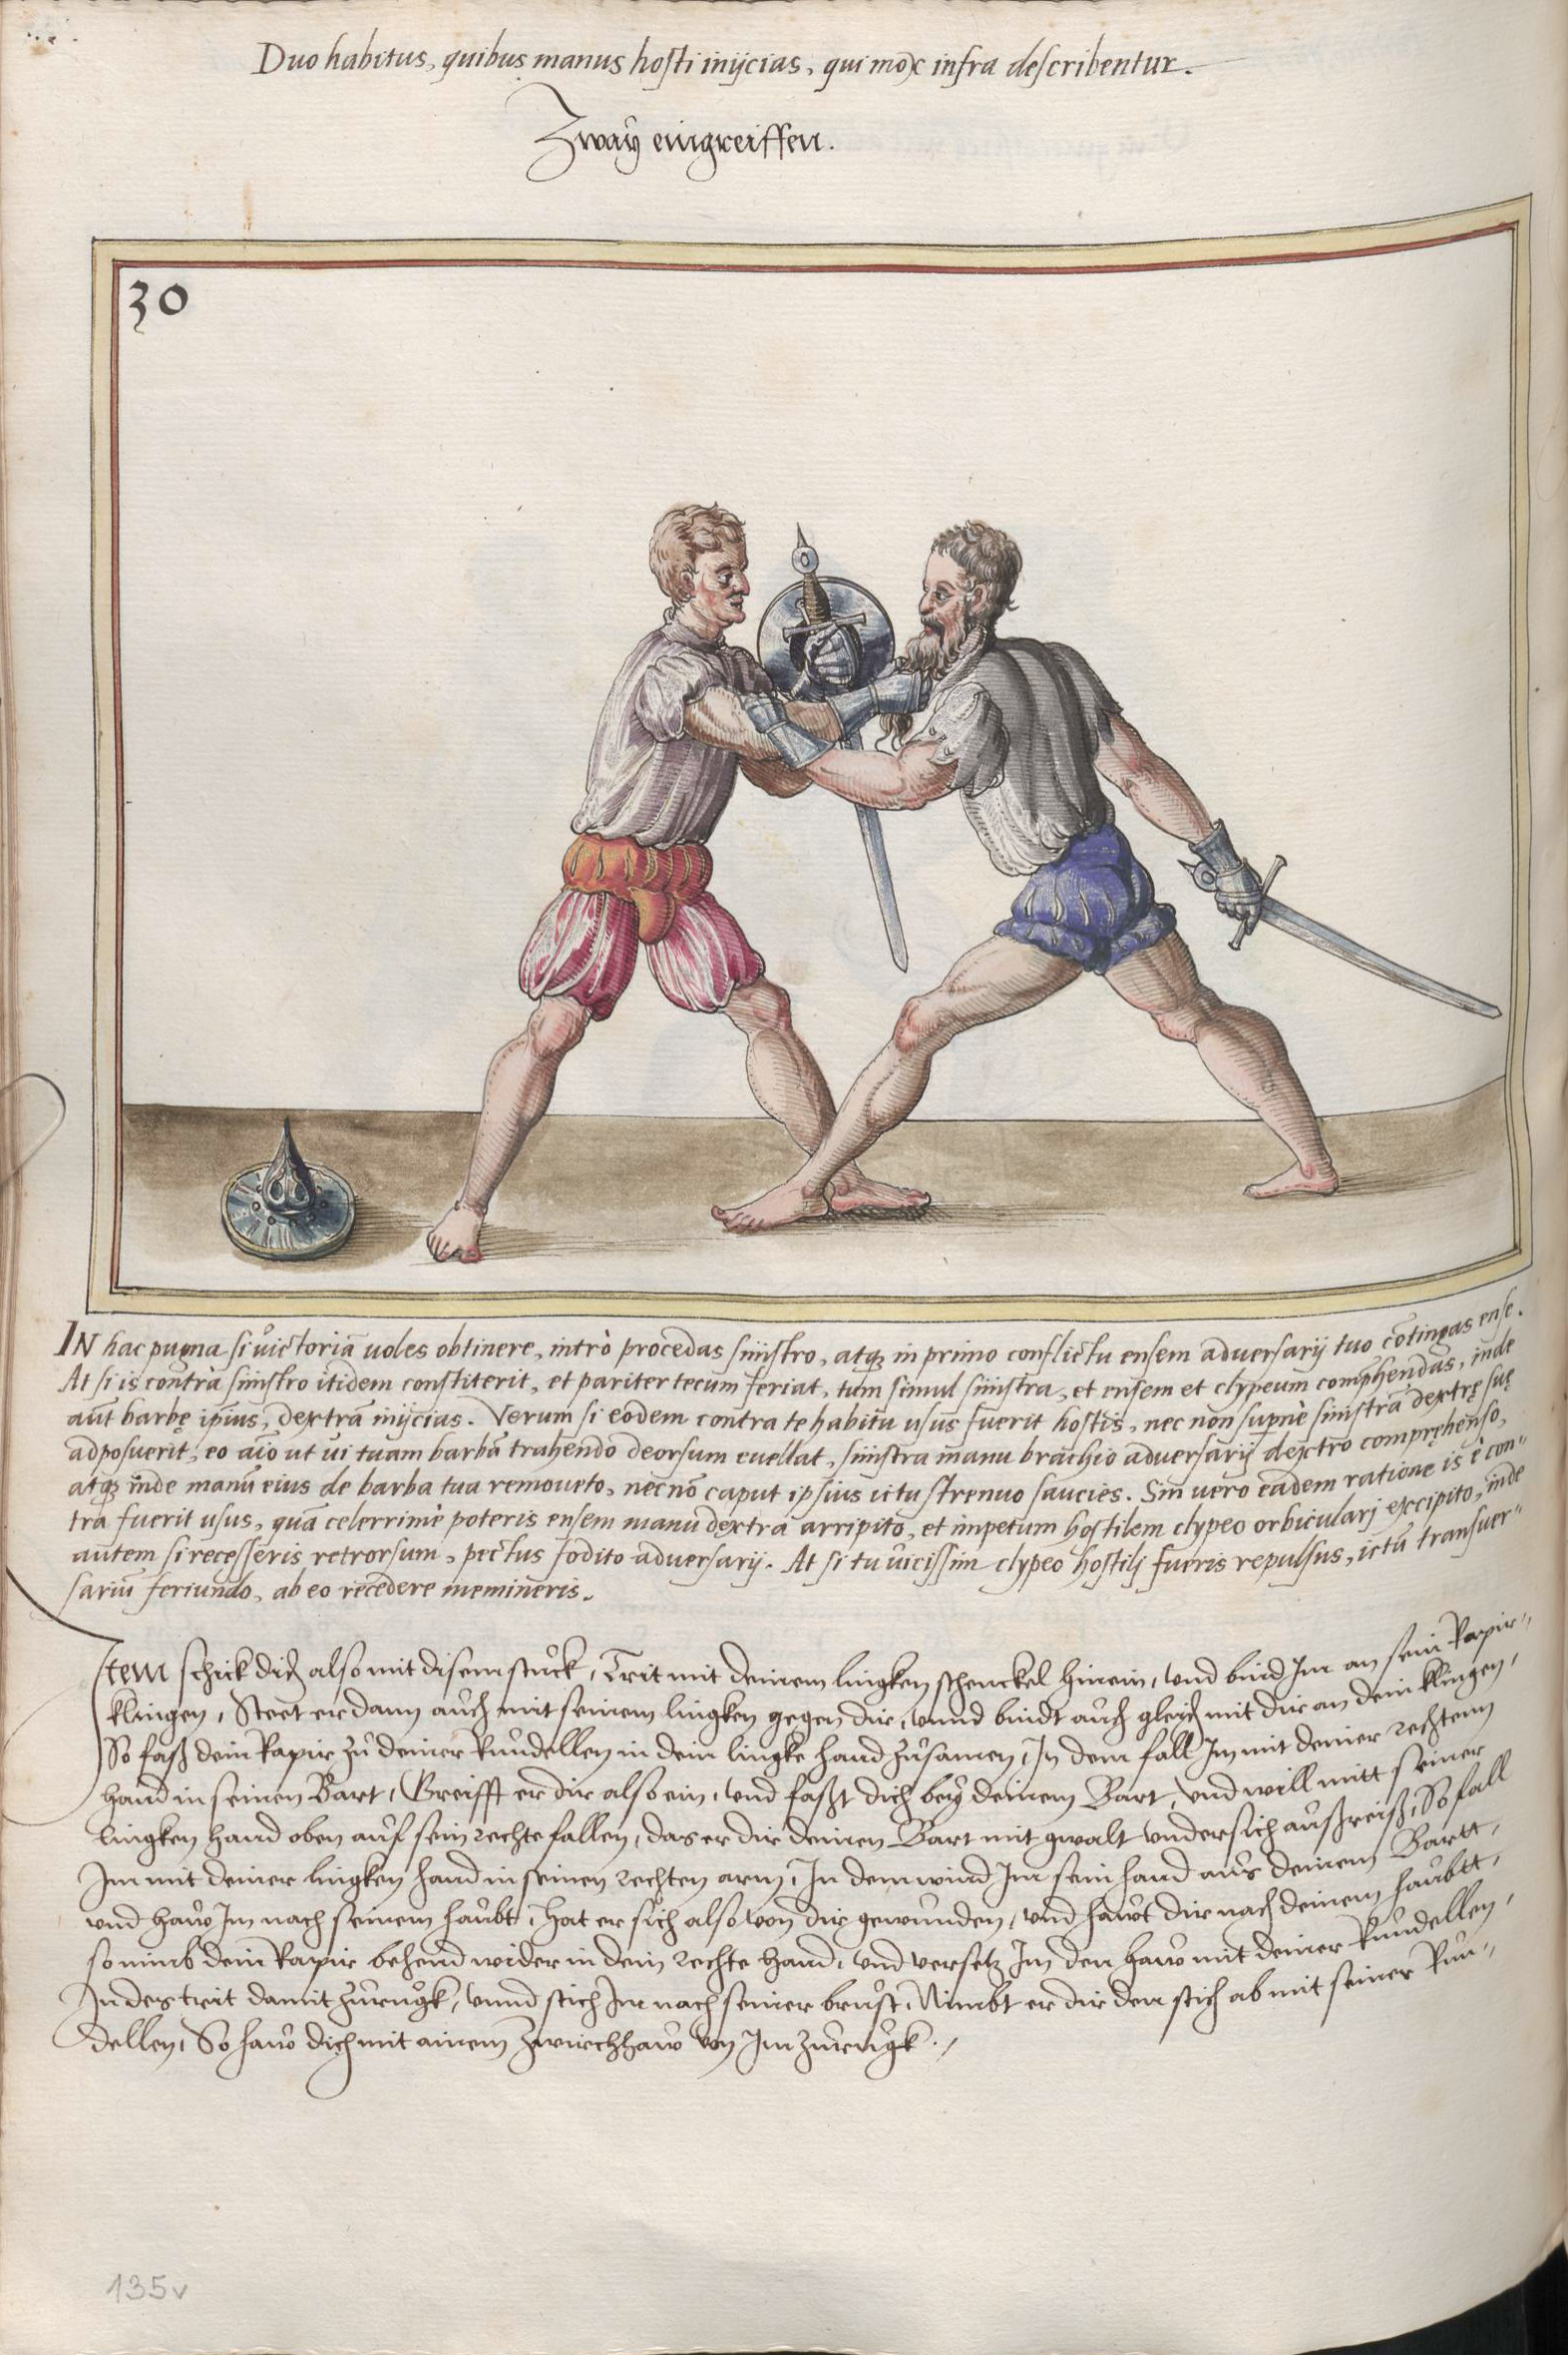 Duo habitus, quibus manus hosti inijcias, qui mox infra describentur.
Zway eingreiffen.
30
IN hac pugna si uictoriā uoles obtinere, intrò procedas sinistro, atq; in primo conflictu ensem adversarij tuo cōtingas ense.
At si is contrà sinistro itidem constiterit, et pariter tecum feriat, tum simul sinistra, et ensem et clypeum comp̄hendas, inde
aūt barbę ipsius, dextrā inijcias. Verum si eodem contra te habitu usus fuerit hostis, nec non supnè sinistrā dextrę suę
adposuerit, eo aīo ut ui tuam barbā trahendo deorsum euellat, sinistra manu brachio adversarij dextro compręhenso,
atq; inde manū eius de barba tua remoueto, necnō caput ipsius ictu strenuo saucies. Sin vero eadem ratione is è con-
tra fuerit usus, quā celerrimè poteris ensem manu dextra arripito, et impetum hostilem clypeo orbicularj excipito, inde
autem si recesseris retrorsum, pectus fodito adversarij. At si tu uicissim clypeo hostilj fueris repulsus, ictū transuer-
sariū feriundo, ab eo recedere memineris.
Item schick dich also mit disem stuck, Trit mit deinem lingken schenckel hinein, und bind Im an sein Rapir-
klingen, Steet er dann auch mit seinem lingken gegen dir, unnd bindt auch gleich mit dir an dein klingen,
So faß dein Rapir zu deiner Rundellen in dein lingke hand zusamen, In dem fall Im mit deiner rechtenn
hand in seinen Bart, Greifft er dir also ein, und faßt dich bey deinem Bart, und will mitt seiner
lingken hand oben auf sein rechte fallen, das er dir deinen Bart mit gwalt undersich außreiß, So fall
Im mit deiner lingken hand in seinen rechten arm, In dem wind Im sein hand aus deinem Bartt,
und haw Im nach seinem haubt, Hat er sich also von dir gewunden, und hawt dir nach deinem haubtt,
so nimb dein Rapir behend wider in dein rechte hand, und versetz Im den haw mit deiner Rundellen,
Indes trit damit zurugk, unnd stich Im nach seiner brust, Nimbt er dir den stich ab mit seiner Run-
dellen, So haw dich mit ainem Zwirchhaw von Im zurugk.
135v